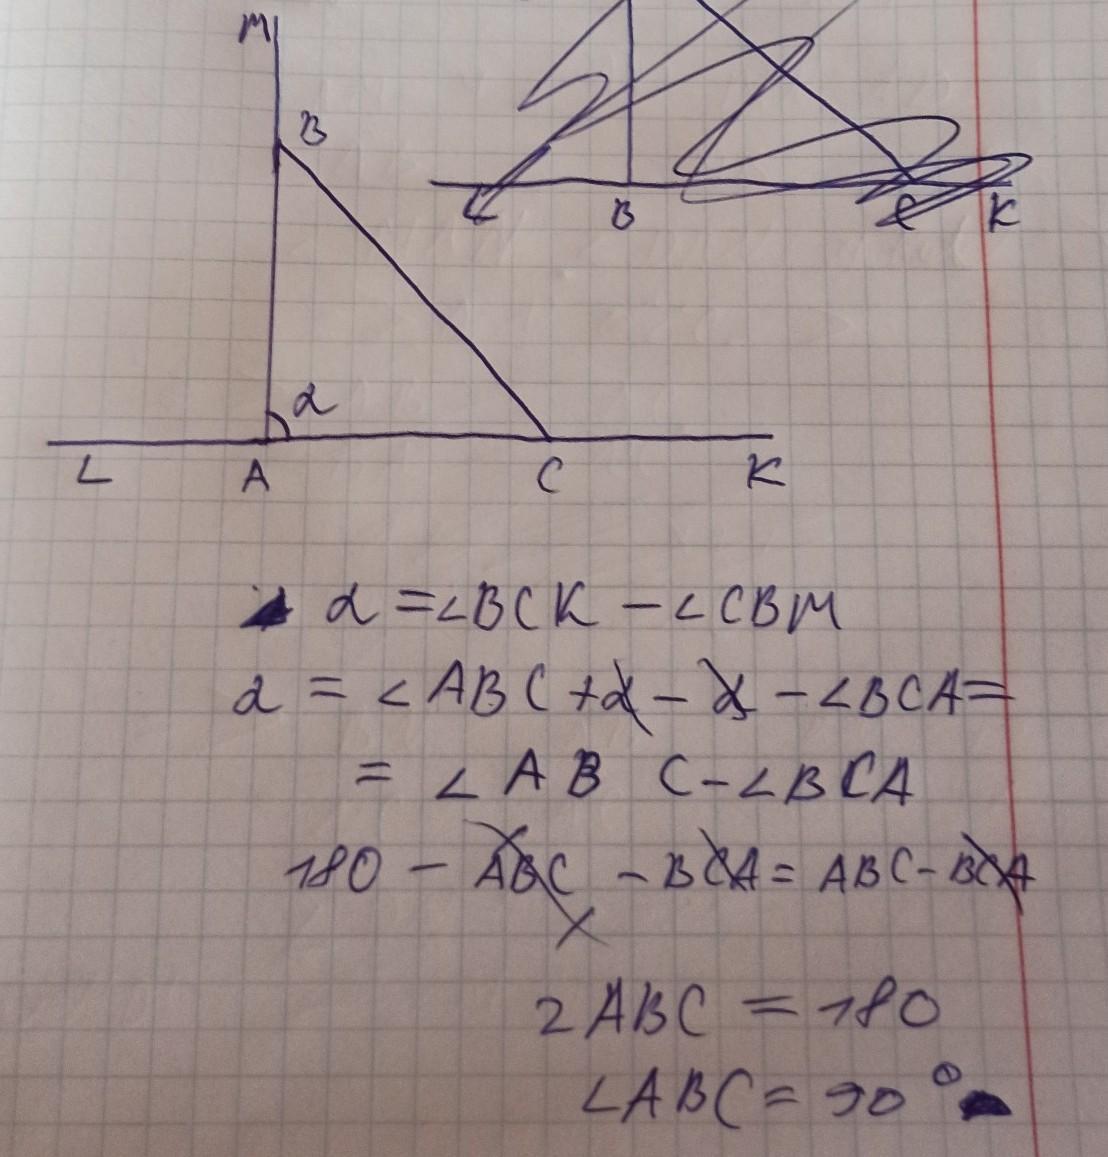 M
B
α
L A C K
L B C K
α = ∠BCK − ∠CBM
α = ∠ABC + α − α − ∠BCA =
= ∠ABC − ∠BCA
180 − ABC − BCA = ABC − BCA
2ABC = 180
∠ABC = 90°